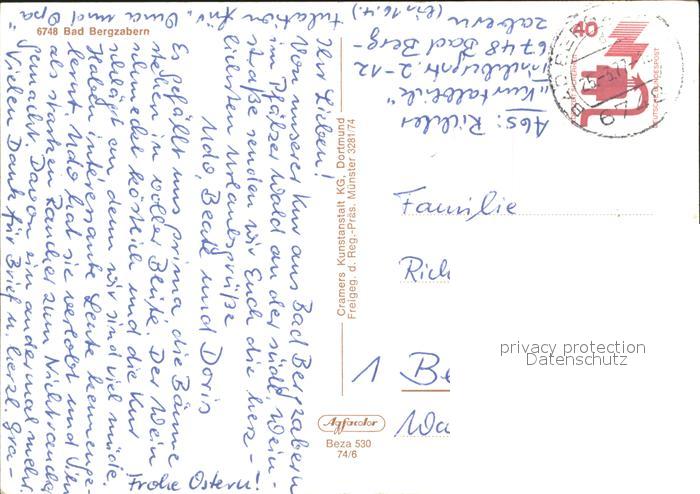 6748 Bad Bergzabern
Ihr Lieben!
Von unserer Kur aus Bad Bergzabern
im Pfälzer Wald an der südl. Wein-
straße senden wir Euch die herz-
lichsten Urlaubsgrüße
Udo, Beate und Doris
Es gefällt uns prima die Bäume
stehen in voller Blüte. Der Wein
schmeckt köstlich und die Kur
schlägt an, denn wir sind viel müde.
Haben interessante Leute kennenge-
lernt. Udo hat sie verlobt und ihn
als starken Raucher zum Nichtraucher
gemacht. Davon ein andermal mehr.
Vielen Dank für Brief u. herzl. Gra-
tulation für „Oma und Opa“
(bis 16.4.)
Frohe Ostern!
Cramers Kunstanstalt KG, Dortmund
Freigeg. d. Reg.-Präs. Münster 3281/74
Agfacolor
Beza 530
74/6
Abs: Richter
„Kurtalblick“
2-12
6748 Bad Berg-
zabern
40
DEUTSCHE BUNDESPOST
Familie
Rich
1 Be
Wa
privacy protection
Datenschutz